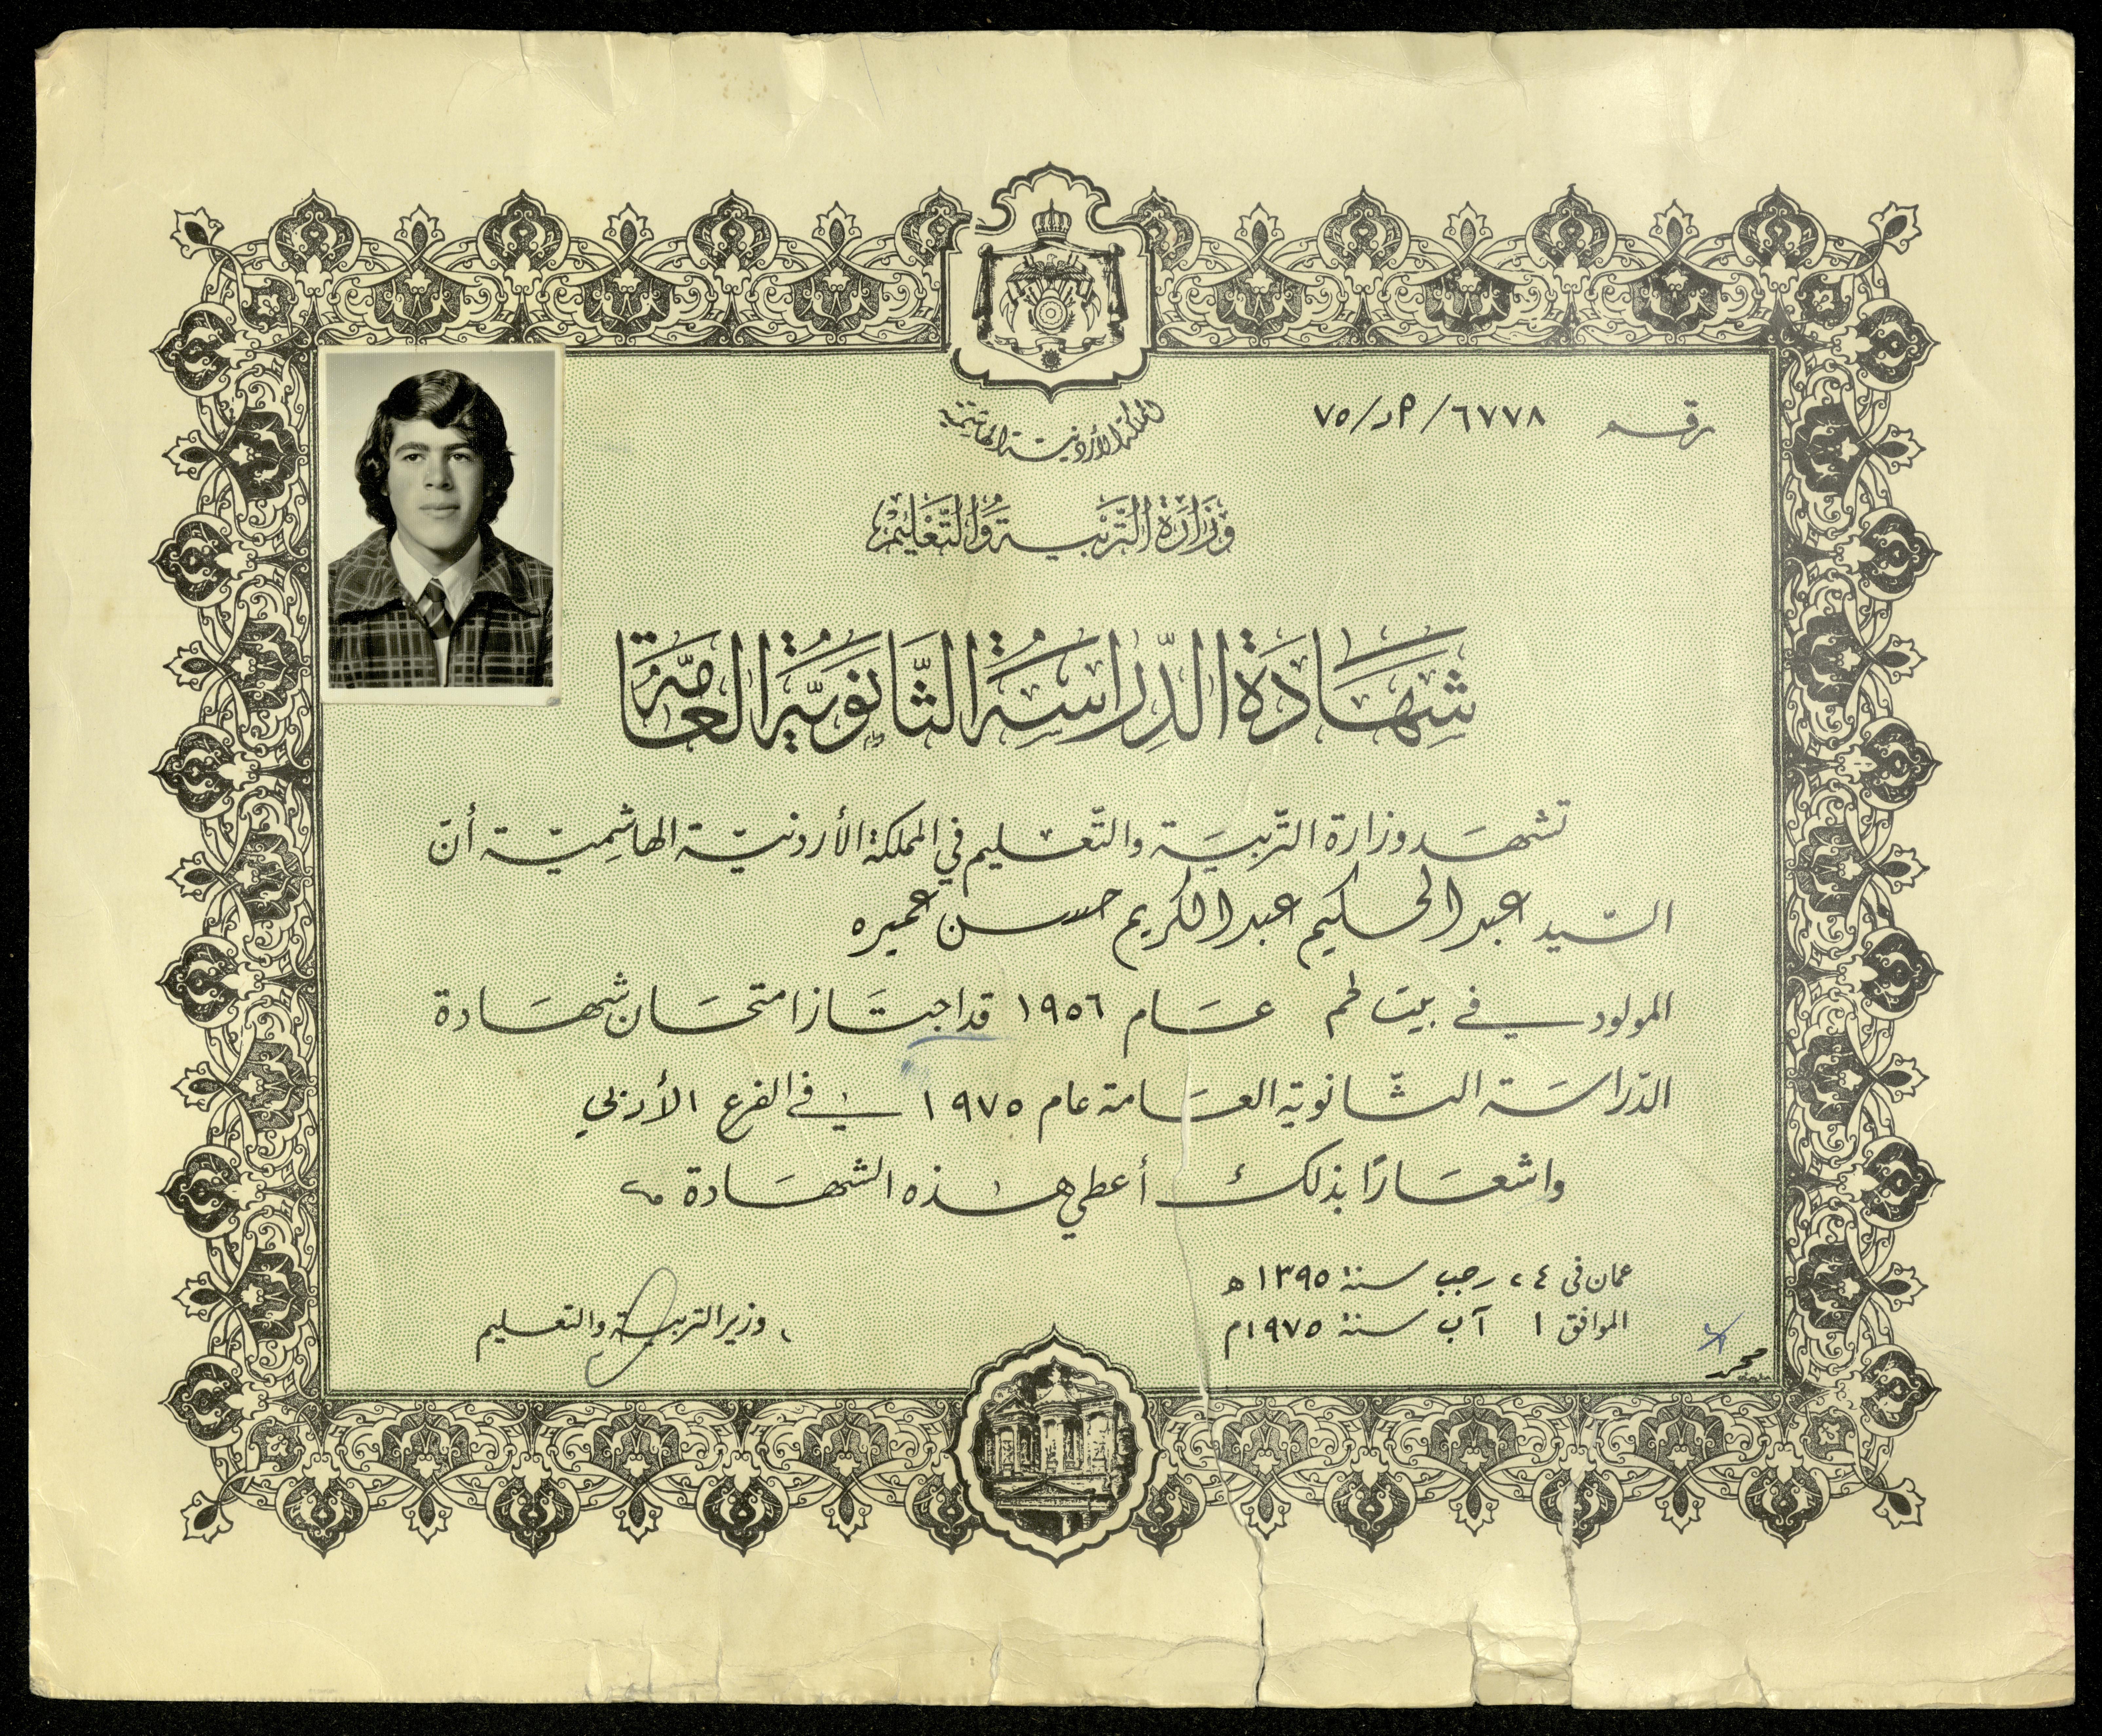 المملكة الأردنية الهاشمية
رقم ٦٧٧٨/م د/٧٥
وَزَارَةُ التَّرْبِيَةِ وَالتَّعْلِيْمِ
شَهَادَةُ الدِّرَاسَةُ الثَّانَوِيَّةُ العَامَّةُ
تشهَد وزارة التّربيَة والتّعليم في المملكة الأردنيّة الهاشِميّة أنّ
السّيد عبد الحكيم عبد الكريم حسن عميره
المولود في بيت لحم عَام ١٩٥٦ قد اجتَاز امتحَان شهَادة
الدّراسَة الثّانوية العَامة عام ١٩٧٥ في الفرع الأدبي
واشعَارًا بذلك أعطي هذه الشهَادة
عمان في ٢٤ رجب سنة ١٣٩٥ ه
الموافق ١ آب سنة ١٩٧٥م
وزير التربية والتعليم
محمد